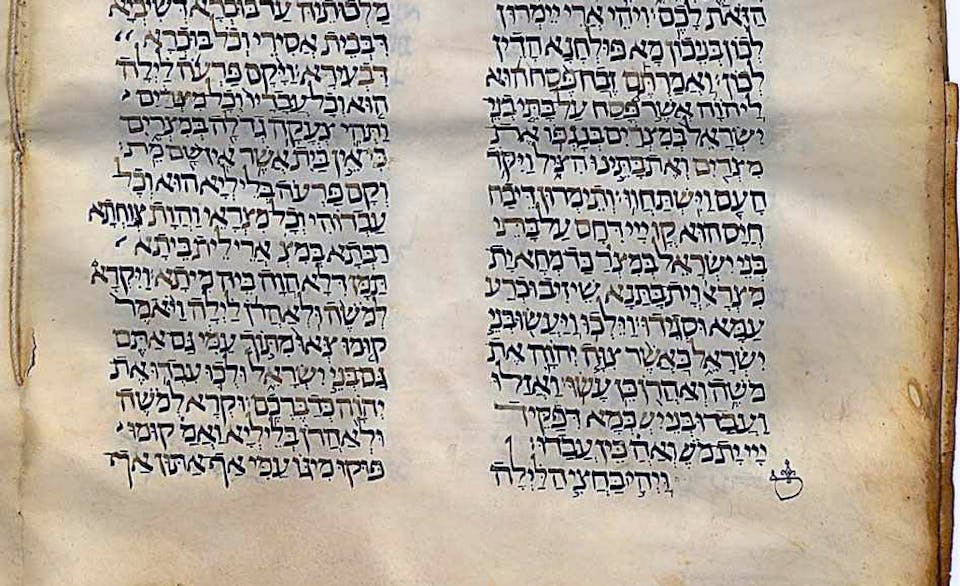 הזאת לכם ויהי ארי יימרון
לכון בניכון מא פולחנא הדין
לכון ואמרתם זבח פסח הוא
ליהוה אשר פסח על בתי בני
ישראל במצרים בנגפו את
מצרים ואת בתינו הציל ויקד
העם וישתחוו ותימרון דיבח
חייס הוא קדֹ יי דרחם על בתי
בני ישראל במצרֹ כד מחא ית
מצראי וית בתנא שיזיב וכרע
עמא וסגידו וילכו ויעשו בני
ישראל כאשר צוה יהוה את
משה ואהרן כן עשו ואזלו
ועבדו בני יש כמא דפקיד
יי ית משֹ ואהֹ כין עבדו׃
ויהי בחצי הלילה
מלכותיה עד בוכרא דשיבא
דבבית אסירי וכל בוכרא
דבעירא ויקם פרעה לילה
הוא וכל עבדיו וכל מצרים
ותהי צעקה גדלה במצרים
כי אין בית אשר אין שם מת
וקם פרעה בליליא הוא וכל
עבדוהי וכל מצראי והות צוחתא
רבתא במצֹ ארי לית ביתא
תמן דלא הוה ביה מיתא ויקרא
למשה ולאהרן לילה ויאמר
קומו צאו מתוך עמי גם אתם
גם בני ישראל ולכו עבדו את
יהוה כדברכם וקרא למשה
ולאהרן בליליא ואמֹ קומו
פוקו מיגו עמי אף אתון אף